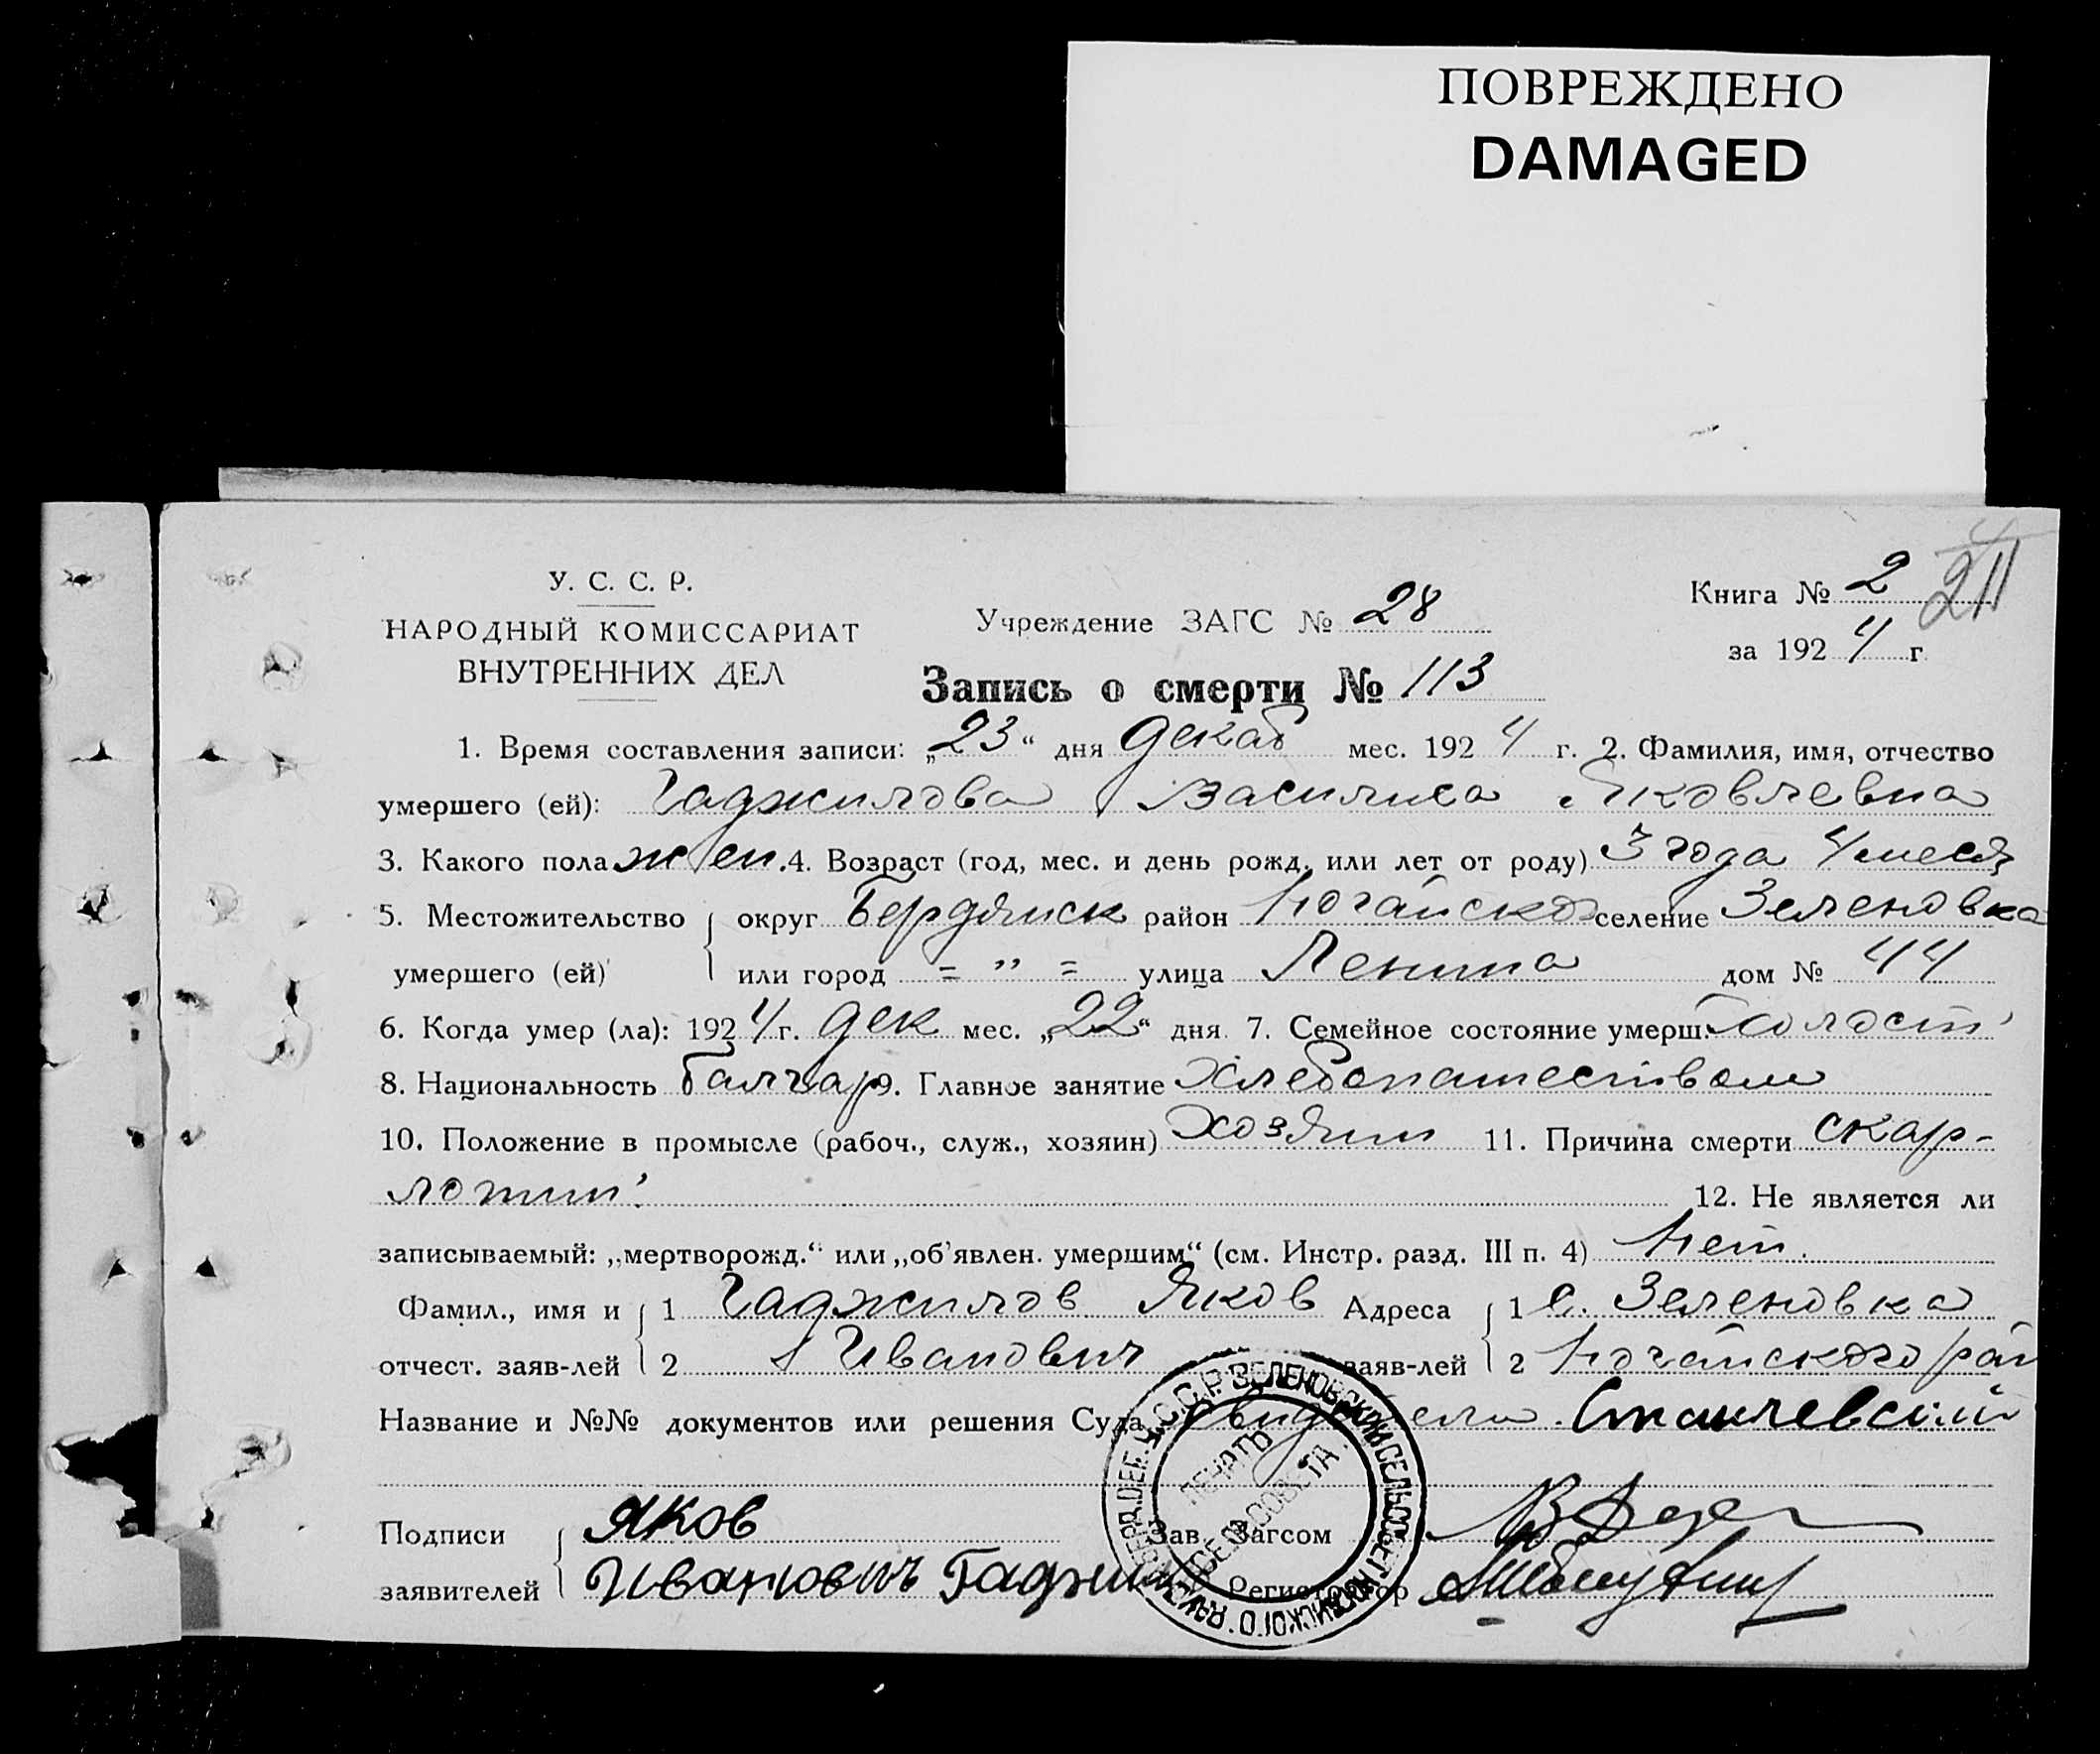 ПОВРЕЖДЕНО
DAMAGED
У. С. С. Р.
НАРОДНЫЙ КОМИССАРИАТ
ВНУТРЕННИХ ДЕЛ
Учреждение ЗАГС № 28
Книга № 2
211
за 1924 г.
Запись о смерти № 113
1. Время составления записи: „23“ дня декаб мес. 1924 г. 2. Фамилия, имя, отчество
умершего (ей): Гаджилова Василиса Яковлевна
3. Какого пола жен. 4. Возраст (год, мес. и день рожд. или лет от роду) 3 года 4 меся
5. Местожительство округ Бердянск район Ногайско селение Зеленовка
умершего (ей) или город = " = улица Ленина дом № 44
6. Когда умер (ла): 1924 г. дек мес. „22“ дня. 7. Семейное состояние умерш. холост
8. Национальность Балгар 9. Главное занятие Хлебопашеством
10. Положение в промысле (рабоч., служ., хозяин) хозяин 11. Причина смерти скар-
лотин
12. Не является ли
записываемый: „мертворожд.“ или „об'явлен. умершим“ (см. Инстр. разд. III п. 4) Нет.
Фамил., имя и 1 Гаджилов Яков Адреса 1 с. Зеленовка
отчест. заяв-лей 2 Иванович заяв-лей 2 Ногайского рай
Название и №№ документов или решения Суда
Подписи Яков Зав. Загсом
заявителей Иванович Регистратор
У.С.С.Р. ЗЕЛЕНОВСКИЙ СЕЛЬСОВЕТ НОГАЙСКОГО
ПЕЧАТЬ
СЕЛЬСОВЕТА